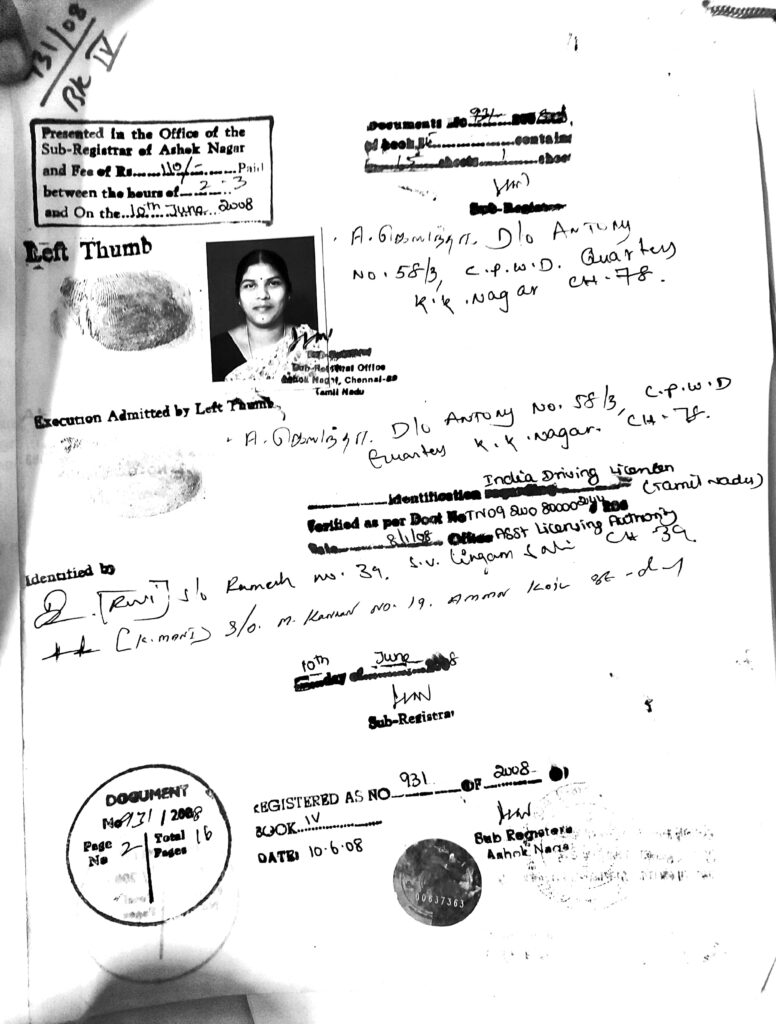 931/08
BK IV
Presented in the Office of the
Sub-Registrar of Ashok Nagar
and Fee of Rs. 110/- Paid
between the hours of 2-3
and On the 10th June 2008
Documents No 931 200
of book contains
15 sheets 1 sheet
Sub-Registrar
Left Thumb
A. D/o ANTONY
NO. 58/3, C.P.W.D. Quarters
K.K. Nagar CH-78.
Sub-Registrar Office
Ashok Nagar, Chennai-89
Tamil Nadu
Execution Admitted by Left Thumb
A. D/o ANTONY NO. 58/3, C.P.W.D
Quarters K.K. Nagar. CH-78.
India Driving Licence
Identification regarding (Tamil Nadu)
Verified as per Doct No TN09
Date 8/1/08 Office ASST Licensing Authority
Identified by
[Ravi] S/o Ramesh no. 39. S.V. Lingam Sali CH 39.
[K. MANI] S/o. M. Kannan NO. 19. Amman Koil
10th June
day of 2008
Sub-Registrar
DOCUMENT
No 931/2008
Page No 2 Total Pages 16
REGISTERED AS NO 931 OF 2008
BOOK IV
DATE: 10.6.08
Sub Registrar
Ashok Nagar
00637363